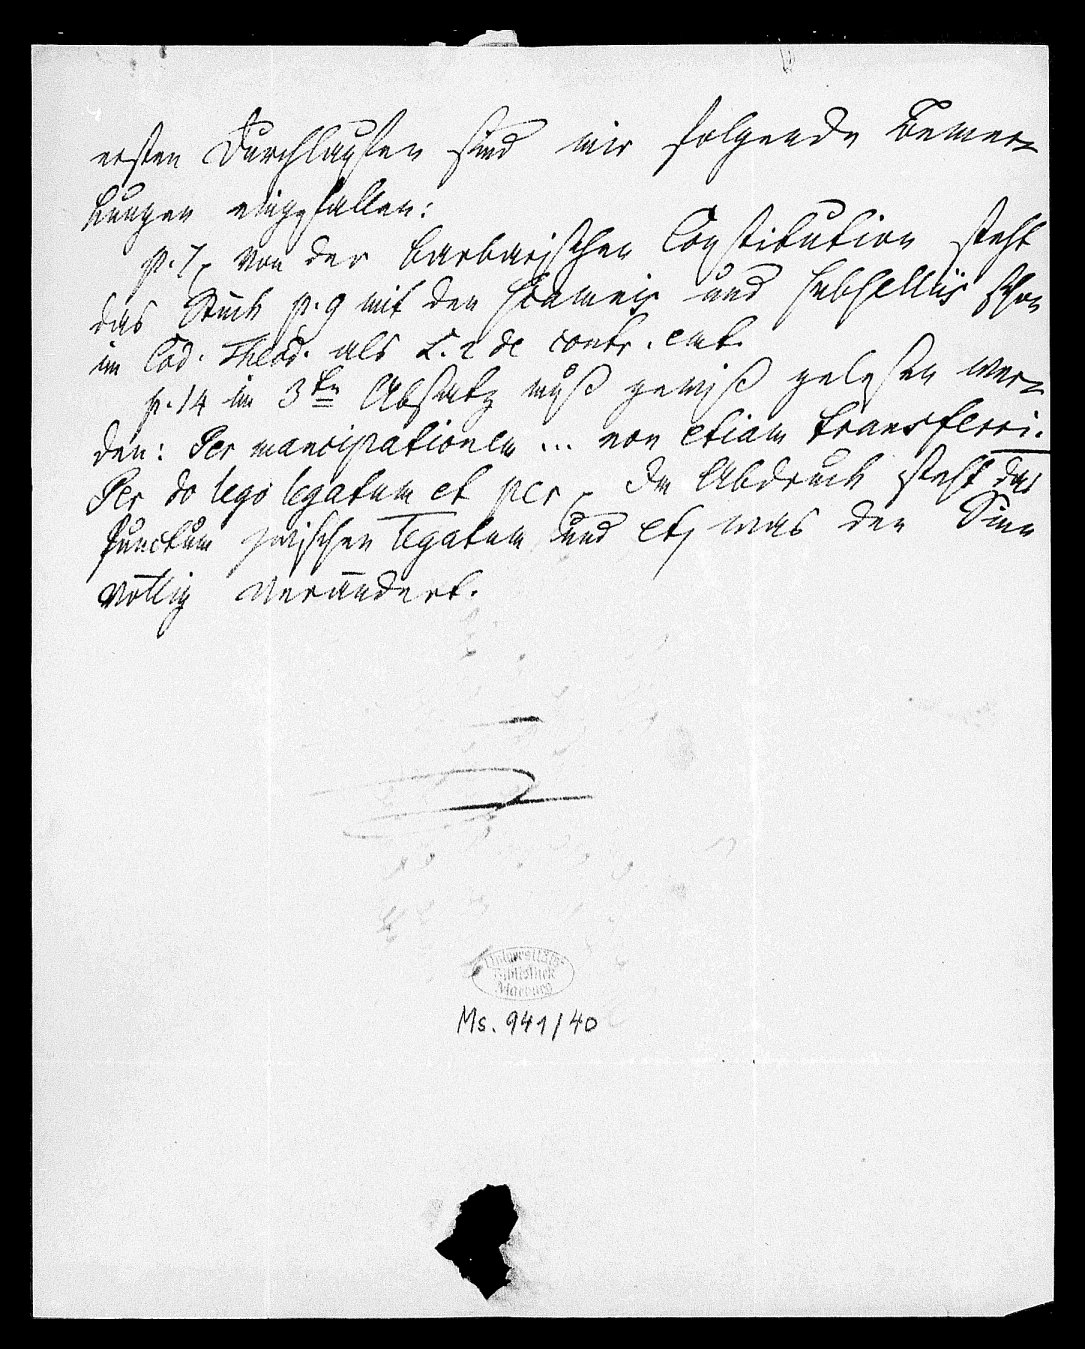 ersten Durchlaufen sind mir folgende Bemer-
kungen eingefallen:
p. 7, Von der barbarischen Constitution steht
das Stück p. 9 mit den scamnis und subselliis schon
im Cod. Theod. als L. 2 de contr. emt.
p. 14 im 3ten Absatz muß gewiß gelesen wer-
den: Per mancipationem ... non etiam transferri.
Per do lego legatum et per, Im Abdruck steht das
Punctum zwischen legatum und et, was den Sinn
völlig verändert.
Universitäts-
Bibliothek
Marburg
Ms. 941/40